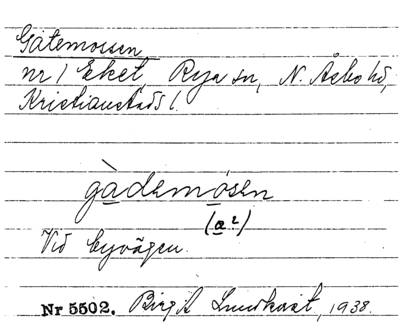 Gatemossen
nr 1 Eket, Rya sn, N. Åsbo hd,
Kristianstads l.
gàdemósen
(a²)
Vid byvägen.
Nr 5502. Birgit Lundkvist, 1938.